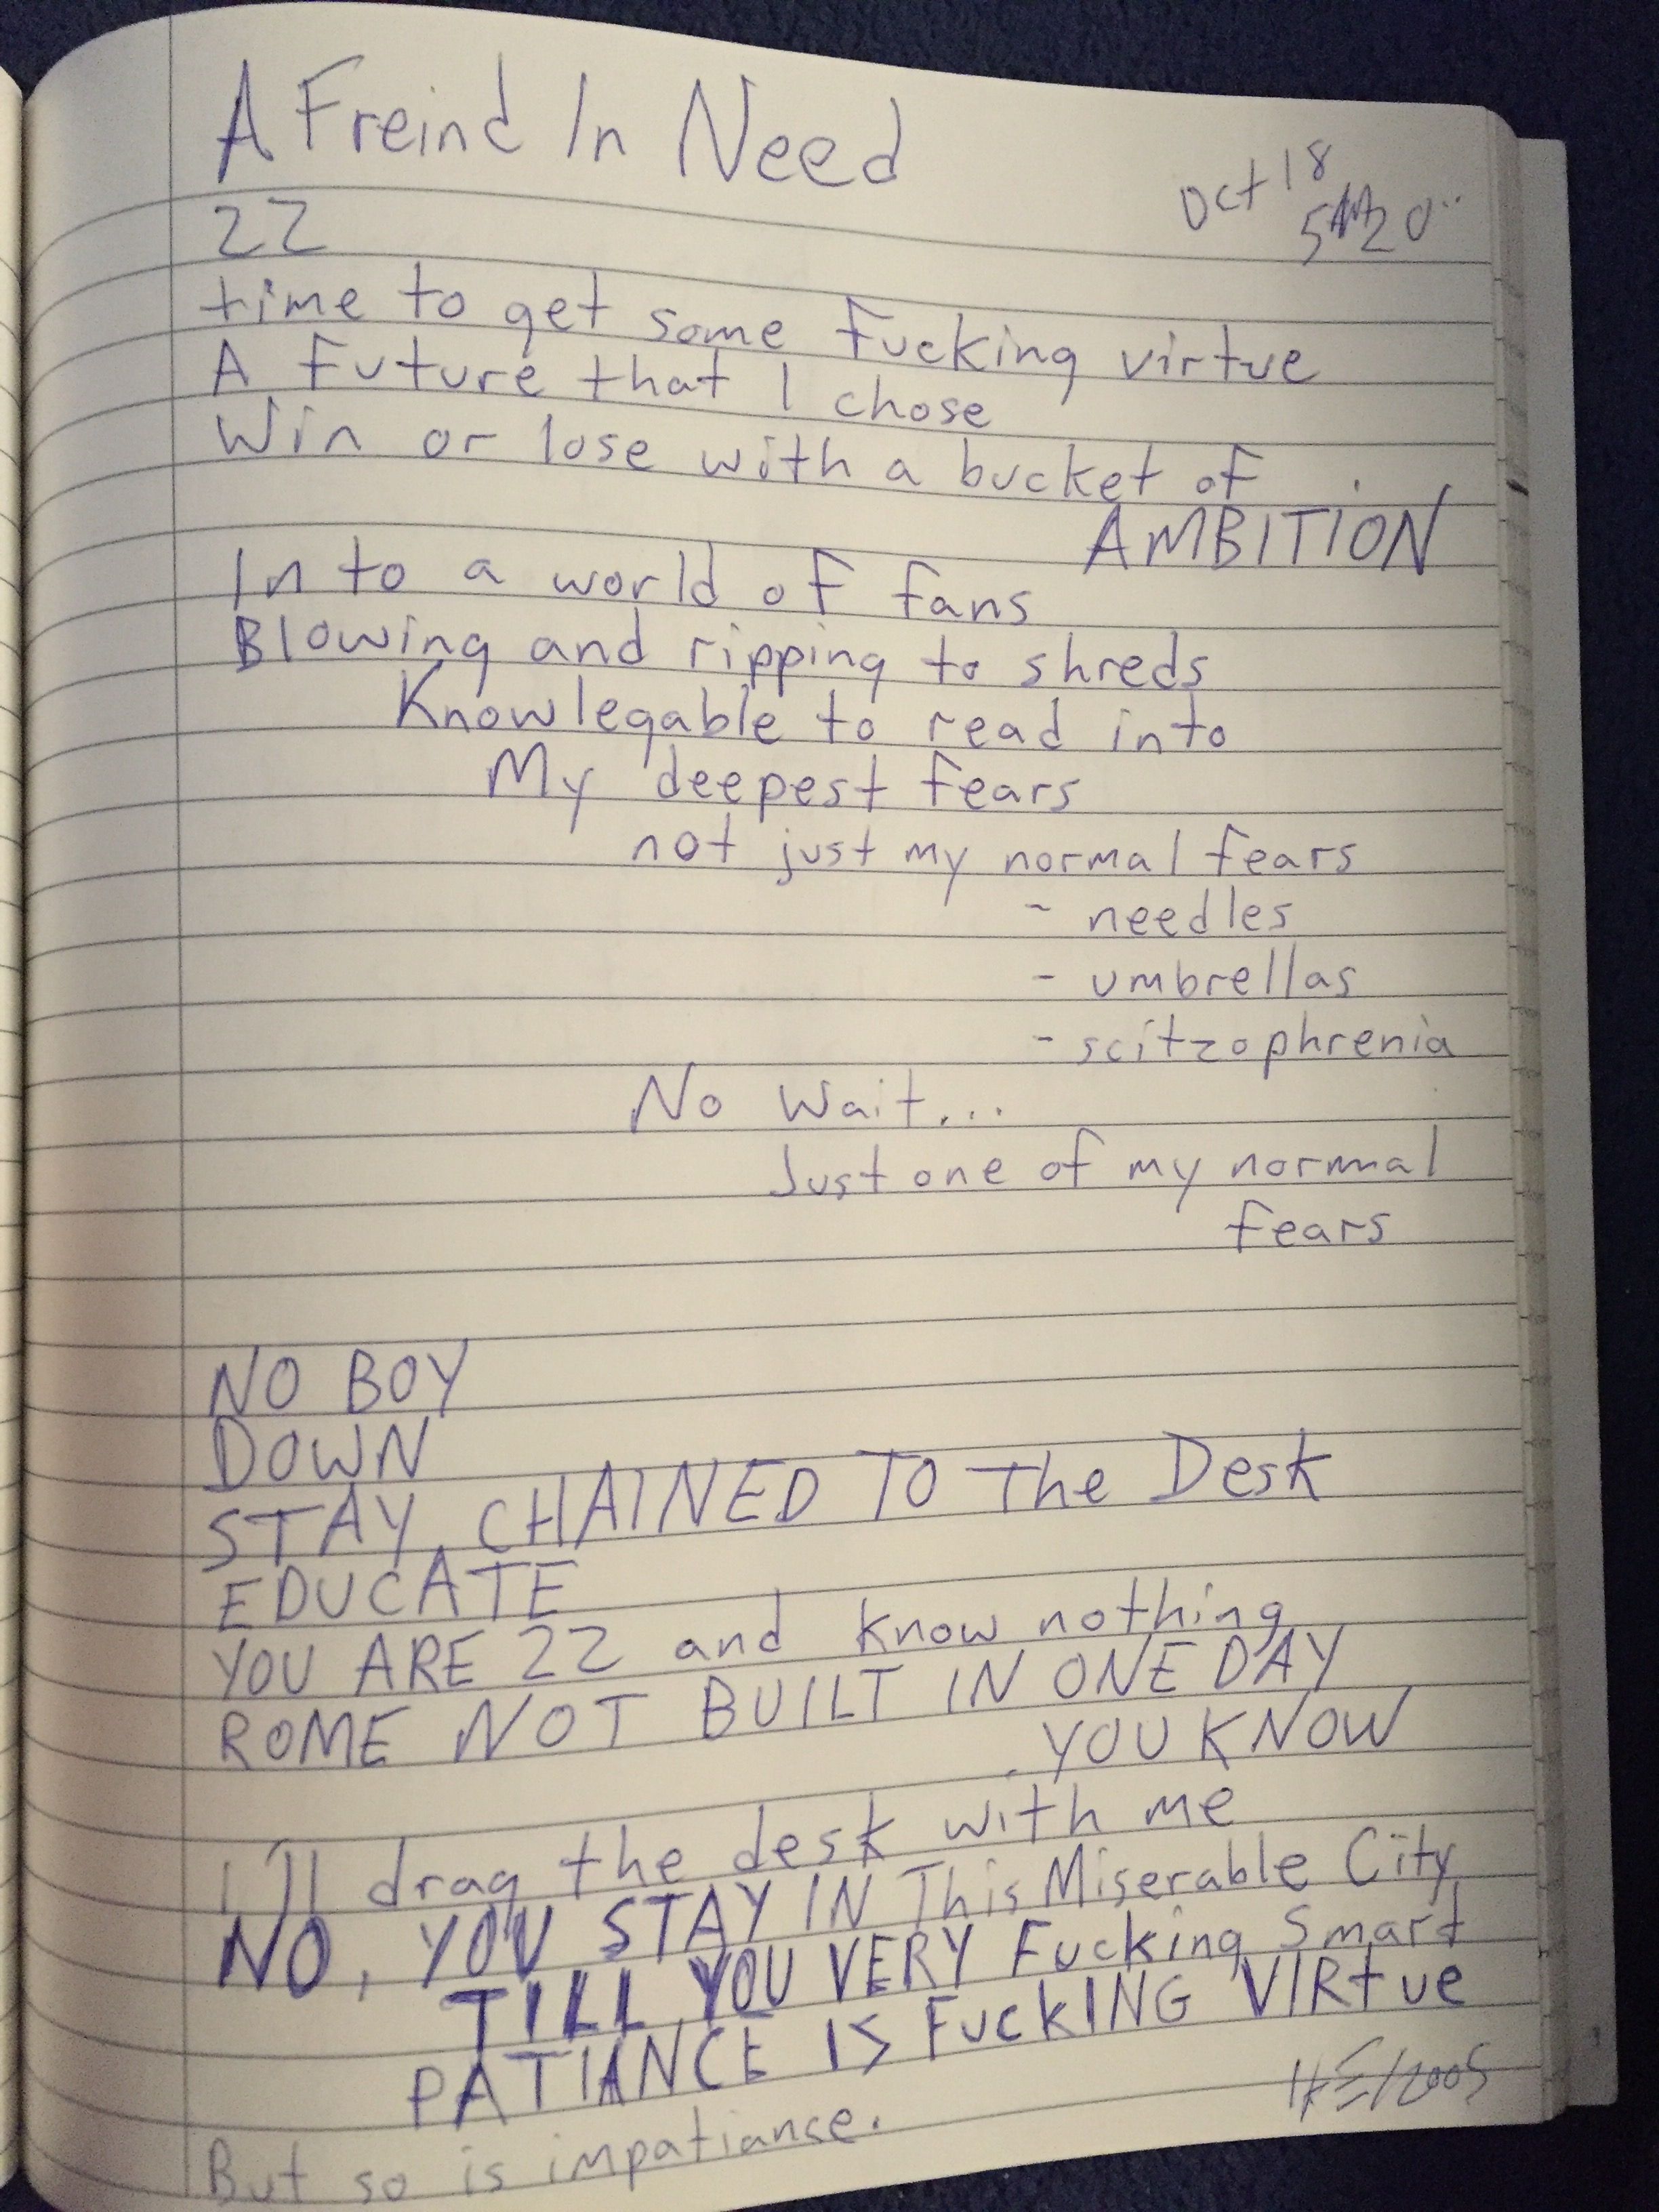 A Freind In Need
Oct 18
22
time to get some Fucking virtue
A Future that I chose
Win or lose with a bucket of
AMBITION
In to a world of fans
Blowing and ripping to shreds
Knowlegable to read into
My deepest fears
not just my normal fears
- needles
- umbrellas
- scitzophrenia
No Wait...
Just one of my normal
fears
NO BOY
DOWN
STAY CHAINED TO The Desk
EDUCATE
YOU ARE 22 and know nothing
ROME NOT BUILT IN ONE DAY
YOU KNOW
I'll drag the desk with me
NO, YOU STAY IN This Miserable City
TILL YOU VERY Fucking Smart
PATIANCE IS FUCKING VIRtue
/2005
But so is impatiance.